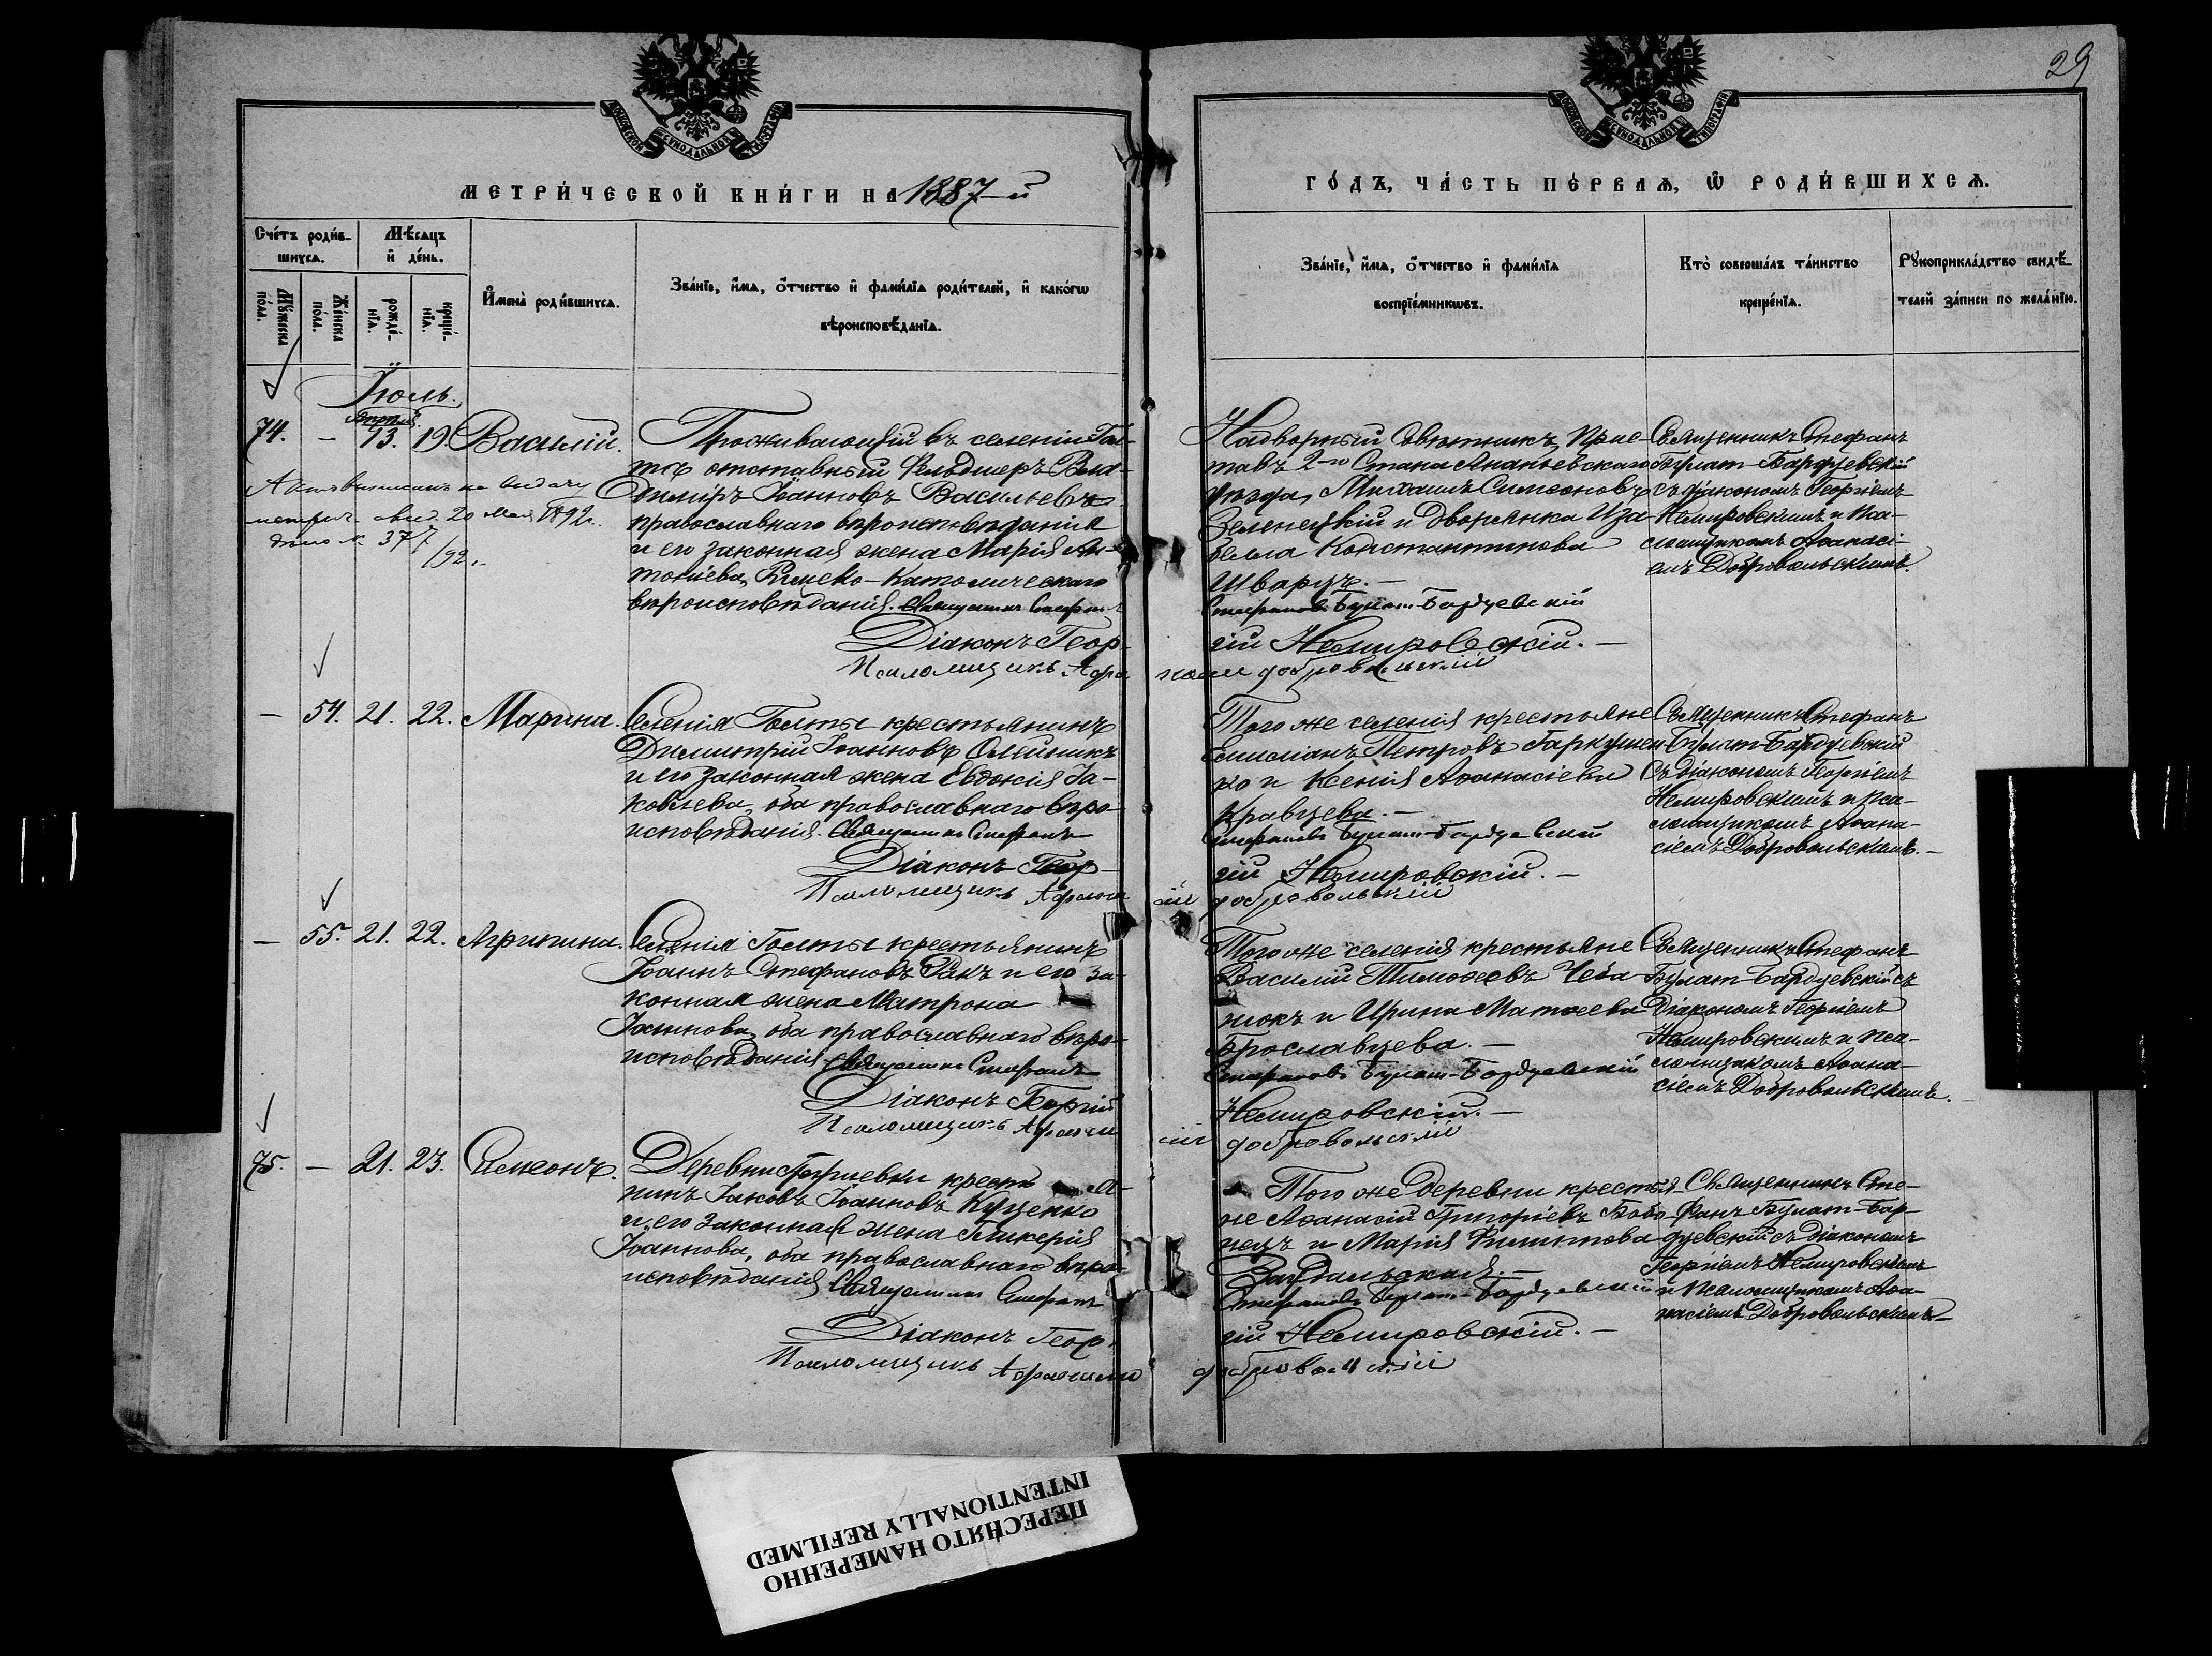 29
МОСКОВСКОЙ СѴНОДАЛЬНОЙ ТИПОГРАФІИ
МОСКОВСКОЙ СѴНОДАЛЬНОЙ ТИПОГРАФІИ
МЕТРИ́ЧЕСКОЙ КНИ́ГИ НА 1887-й
ГО́ДЪ, ЧА́СТЬ ПЕ́РВАѦ, Ѿ РОДИ́ВШИХСѦ.
Сче́тъ роди́в-
шихсѧ.
Мѣ́сѧцъ
и де́нь.
Мꙋ́жеска
по́ла.
Же́нска
по́ла.
рожде́-
нїѧ.
креще́-
нїѧ.
И҆мена̀ роди́вшихсѧ.
Зва́нїе, и҆́мѧ, ѻ҆́тчество и҆ фами́лїѧ роди́телей, и҆ како́гѡ
вѣроисповѣ́данїѧ.
Зва́нїе, и҆́мѧ, ѻ҆́тчество и҆ фами́лїѧ
воспрїе́мникѡвъ.
Кто̀ соверша́лъ та́инство
креще́нїѧ.
Рꙋкоприкла́дство свидѣ́-
телей за́писи по жела́нїю.
Іюль.
74. — 13. 19. Василій.
Проживающій въ селеніи Гол-
тѣ отставный Фельдшеръ Вла-
диміръ Іоанновъ Васильевъ
православнаго вѣроисповѣданія
и его законная жена Марія Ан-
тоніева, Римско-Католическаго
вѣроисповѣданія. Священникъ Стефанъ
Діаконъ Геор-
Псаломщикъ Афа
20 Мая 1892 г.
дѣло № 377/92 г.
Надворный Совѣтникъ, Прис-
тавъ 2-го Стана Ананьевскаго
уѣзда, Михаилъ Симеоновъ
Зеленецкій и дворянка Иза-
белла Константинова
Шварцъ. —
Булат-Бардуевскій
гій Немировскій. —
насій Добровольскій
Священникъ Стефанъ
Булат-Бардуевскій
съ діакономъ Георгіемъ
Немировскимъ и пса-
ломщикомъ Аѳанасі-
емъ Добровольскимъ.
— 54. 21. 22. Марина.
Селенія Голты крестьянинъ
Димитрій Іоанновъ Олейникъ
и его законная жена Евдокія Іа-
ковлева, оба православнаго вѣро-
исповѣданія. Священникъ Стефанъ
Діаконъ Геор-
Псаломщикъ Афанас
Того же селенія крестьяне
Емиліанъ Петровъ Гаркушен-
ко и Ксенія Аѳанасіева
Кравцева. —
Булат-Бардуевскій
гій Немировскій. —
ій Добровольскій
Священникъ Стефанъ
Булат-Бардуевскій
съ діакономъ Георгіемъ
Немировскимъ и пса-
ломщикомъ Аѳана-
сіемъ Добровольскимъ. —
— 55. 21. 22. Агрипина.
Селенія Голты крестьянинъ
Іоаннъ Стефановъ Ракъ и его за-
конная жена Матрона
Іоаннова, оба православнаго вѣро-
исповѣданія. Священникъ Стефанъ
Діаконъ Георгій
Псаломщикъ Афанас
Того же селенія крестьяне
Василій Тимоѳеевъ Чеба-
нюкъ и Ирина Матѳеева
Брославцева. —
Булат-Бардуевскій
Немировскій. —
ій Добровольскій
Священникъ Стефанъ
Булат-Бардуевскій съ
діакономъ Георгіемъ
Немировскимъ и пса-
ломщикомъ Аѳана-
сіемъ Добровольскимъ.
75. — 21. 23. Симеонъ.
Деревни Георгіевки кресть я-
нинъ Іаковъ Іоанновъ Куценко
и его законная жена Гликерія
Іоаннова, оба православнаго вѣро-
исповѣданія Священникъ Стефанъ
Діаконъ Геор-
Псаломщикъ Афанасій
Того же деревни крестья-
не Аѳанасій Григоріевъ Бобо-
нецъ и Марія Филиппова
Булат-Бардуевскій
гій Немировскій. —
Добровольскій
Священникъ Сте-
фанъ Булат-Бар-
дуевскій съ діакономъ
Георгіемъ Немировскимъ
и псаломщикомъ Аѳа-
насіемъ Добровольскимъ. —
ПЕРЕСНЯТО НАМЕРЕННО
INTENTIONALLY REFILMED